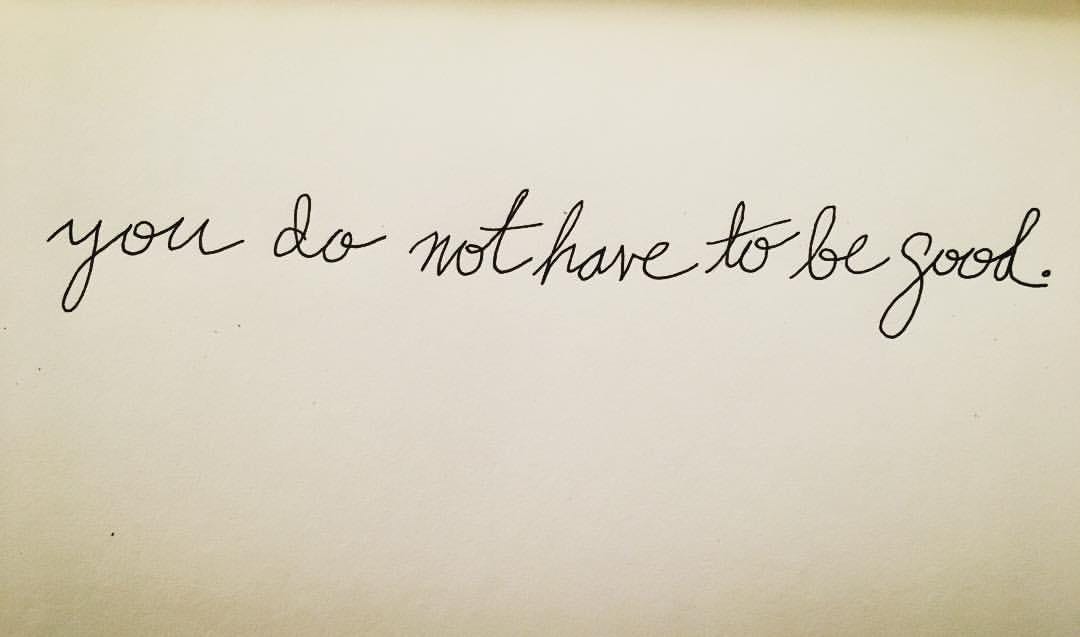 you do not have to be good.